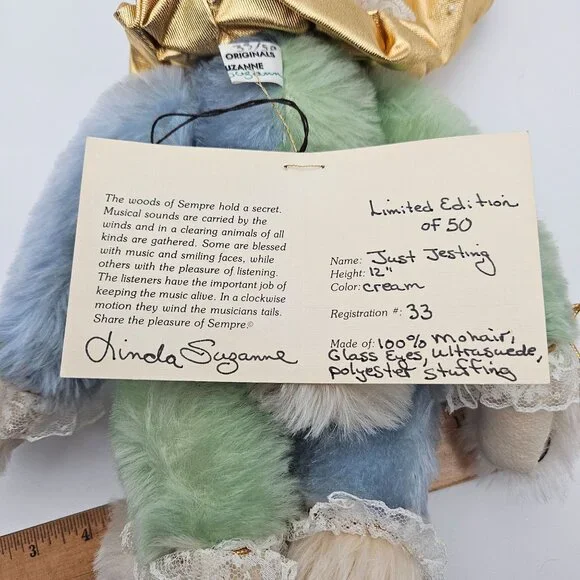 33/50
ORIGINALS
UZANNE
The woods of Sempre hold a secret.
Musical sounds are carried by the
winds and in a clearing animals of all
kinds are gathered. Some are blessed
with music and smiling faces, while
others with the pleasure of listening.
The listeners have the important job of
keeping the music alive. In a clockwise
motion they wind the musicians tails.
Share the pleasure of Sempre.©
Linda Suzanne
Limited Edition
of 50
Name: Just Jesting
Height: 12"
Color: cream
Registration #: 33
Made of: 100% Mohair,
Glass Eyes, ultrasuede,
polyester stuffing
3
4